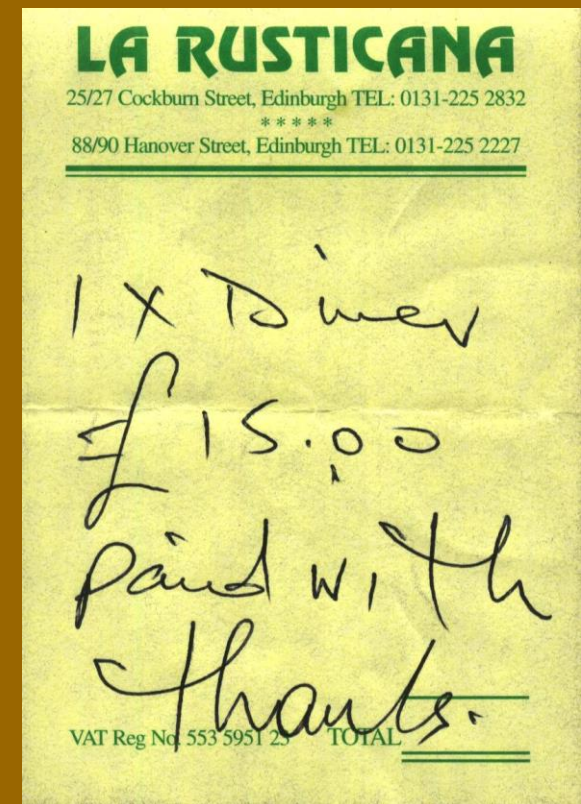 LA RUSTICANA
25/27 Cockburn Street, Edinburgh TEL: 0131-225 2832
*****
88/90 Hanover Street, Edinburgh TEL: 0131-225 2227
1 X Diner
£15.00
Paid with
thanks.
VAT Reg No. 553 5951 23 TOTAL